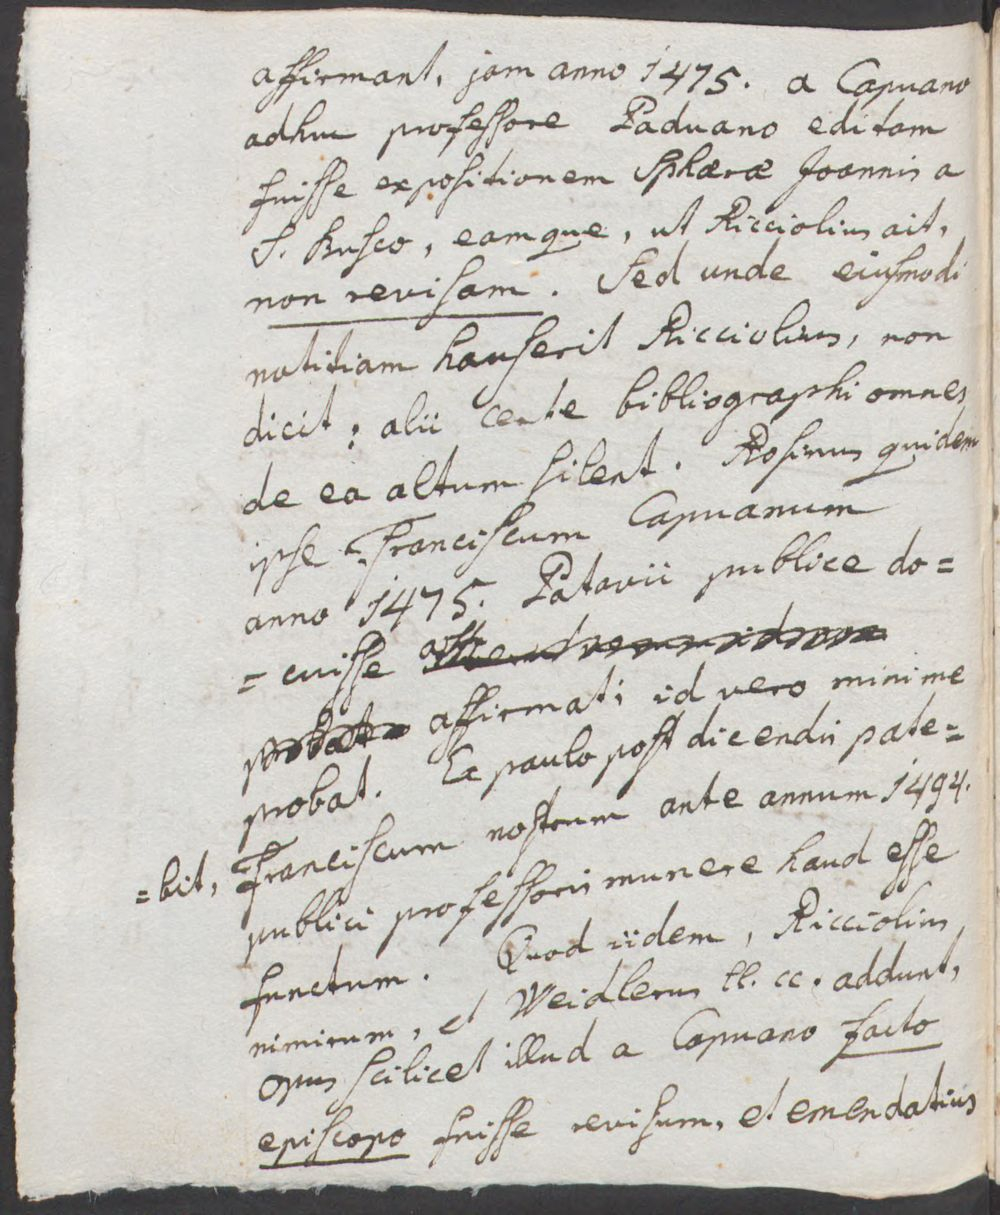 affirmant, jam anno 1475. a Capuano
adhuc professore Paduano editam
fuisse expositionem Sphæræ Joannis a
S. Busco, eamque, ut Ricciolius ait,
non revisam. Sed unde eiusmodi
notitiam hauserit Ricciolius, non
dicit; alii certe bibliographi omnes
de ea altum silent. Rosinus quidem
ipse Franciscum Capuanum
anno 1475. Patavii publice do=
=cuisse
affirmat; id vero minime
probat. Ex paulo post dicendis pate=
=bit, Franciscum nostrum ante annum 1494.
publici professoris munere haud esse
functum. Quod iidem, Ricciolius
nimirum, et Weidlerus ll. cc. addunt,
opus scilicet illud a Capuano facto
episcopo fuisse revisum, et emendatius